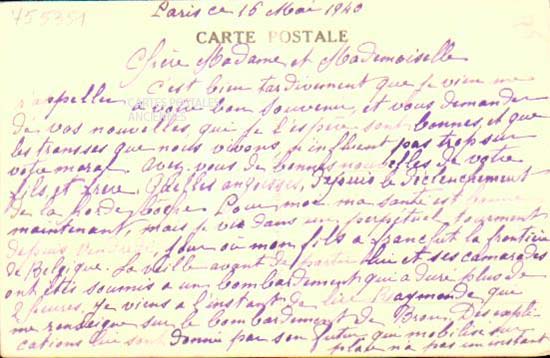 455351
Paris ce 16 Mai 1940
CARTE POSTALE
Chère Madame et Mademoiselle
C'est bien tardivement que je viens me
rappeller à votre bon souvenir, et vous demander
CARTES POSTALES
ANCIENNES
de vos nouvelles, que je l'espère sont bonnes, et que
les transes que nous vivons, n'influent pas trop sur
votre moral. avez vous de bonnes nouvelles de votre
fils et frère. Quelles angoisses, depuis le déclenchement
de la horde boche. Pour moi ma santé est
maintenant, mais je vis dans un perpétuel tourment
depuis Vendredi, jour où mon fils a franchit la frontière
de Belgique. La veille avant de partir lui et ses camarades
ont étés soumis a un bombardement qui a duré plus de
2 heures, je viens a l'instant de lire Raymonde que
me renseigne sur le bombardement de Bron. Des expli-
cations lui sont donnée par son futur qui mobilisé sur
place n'a pas un instant